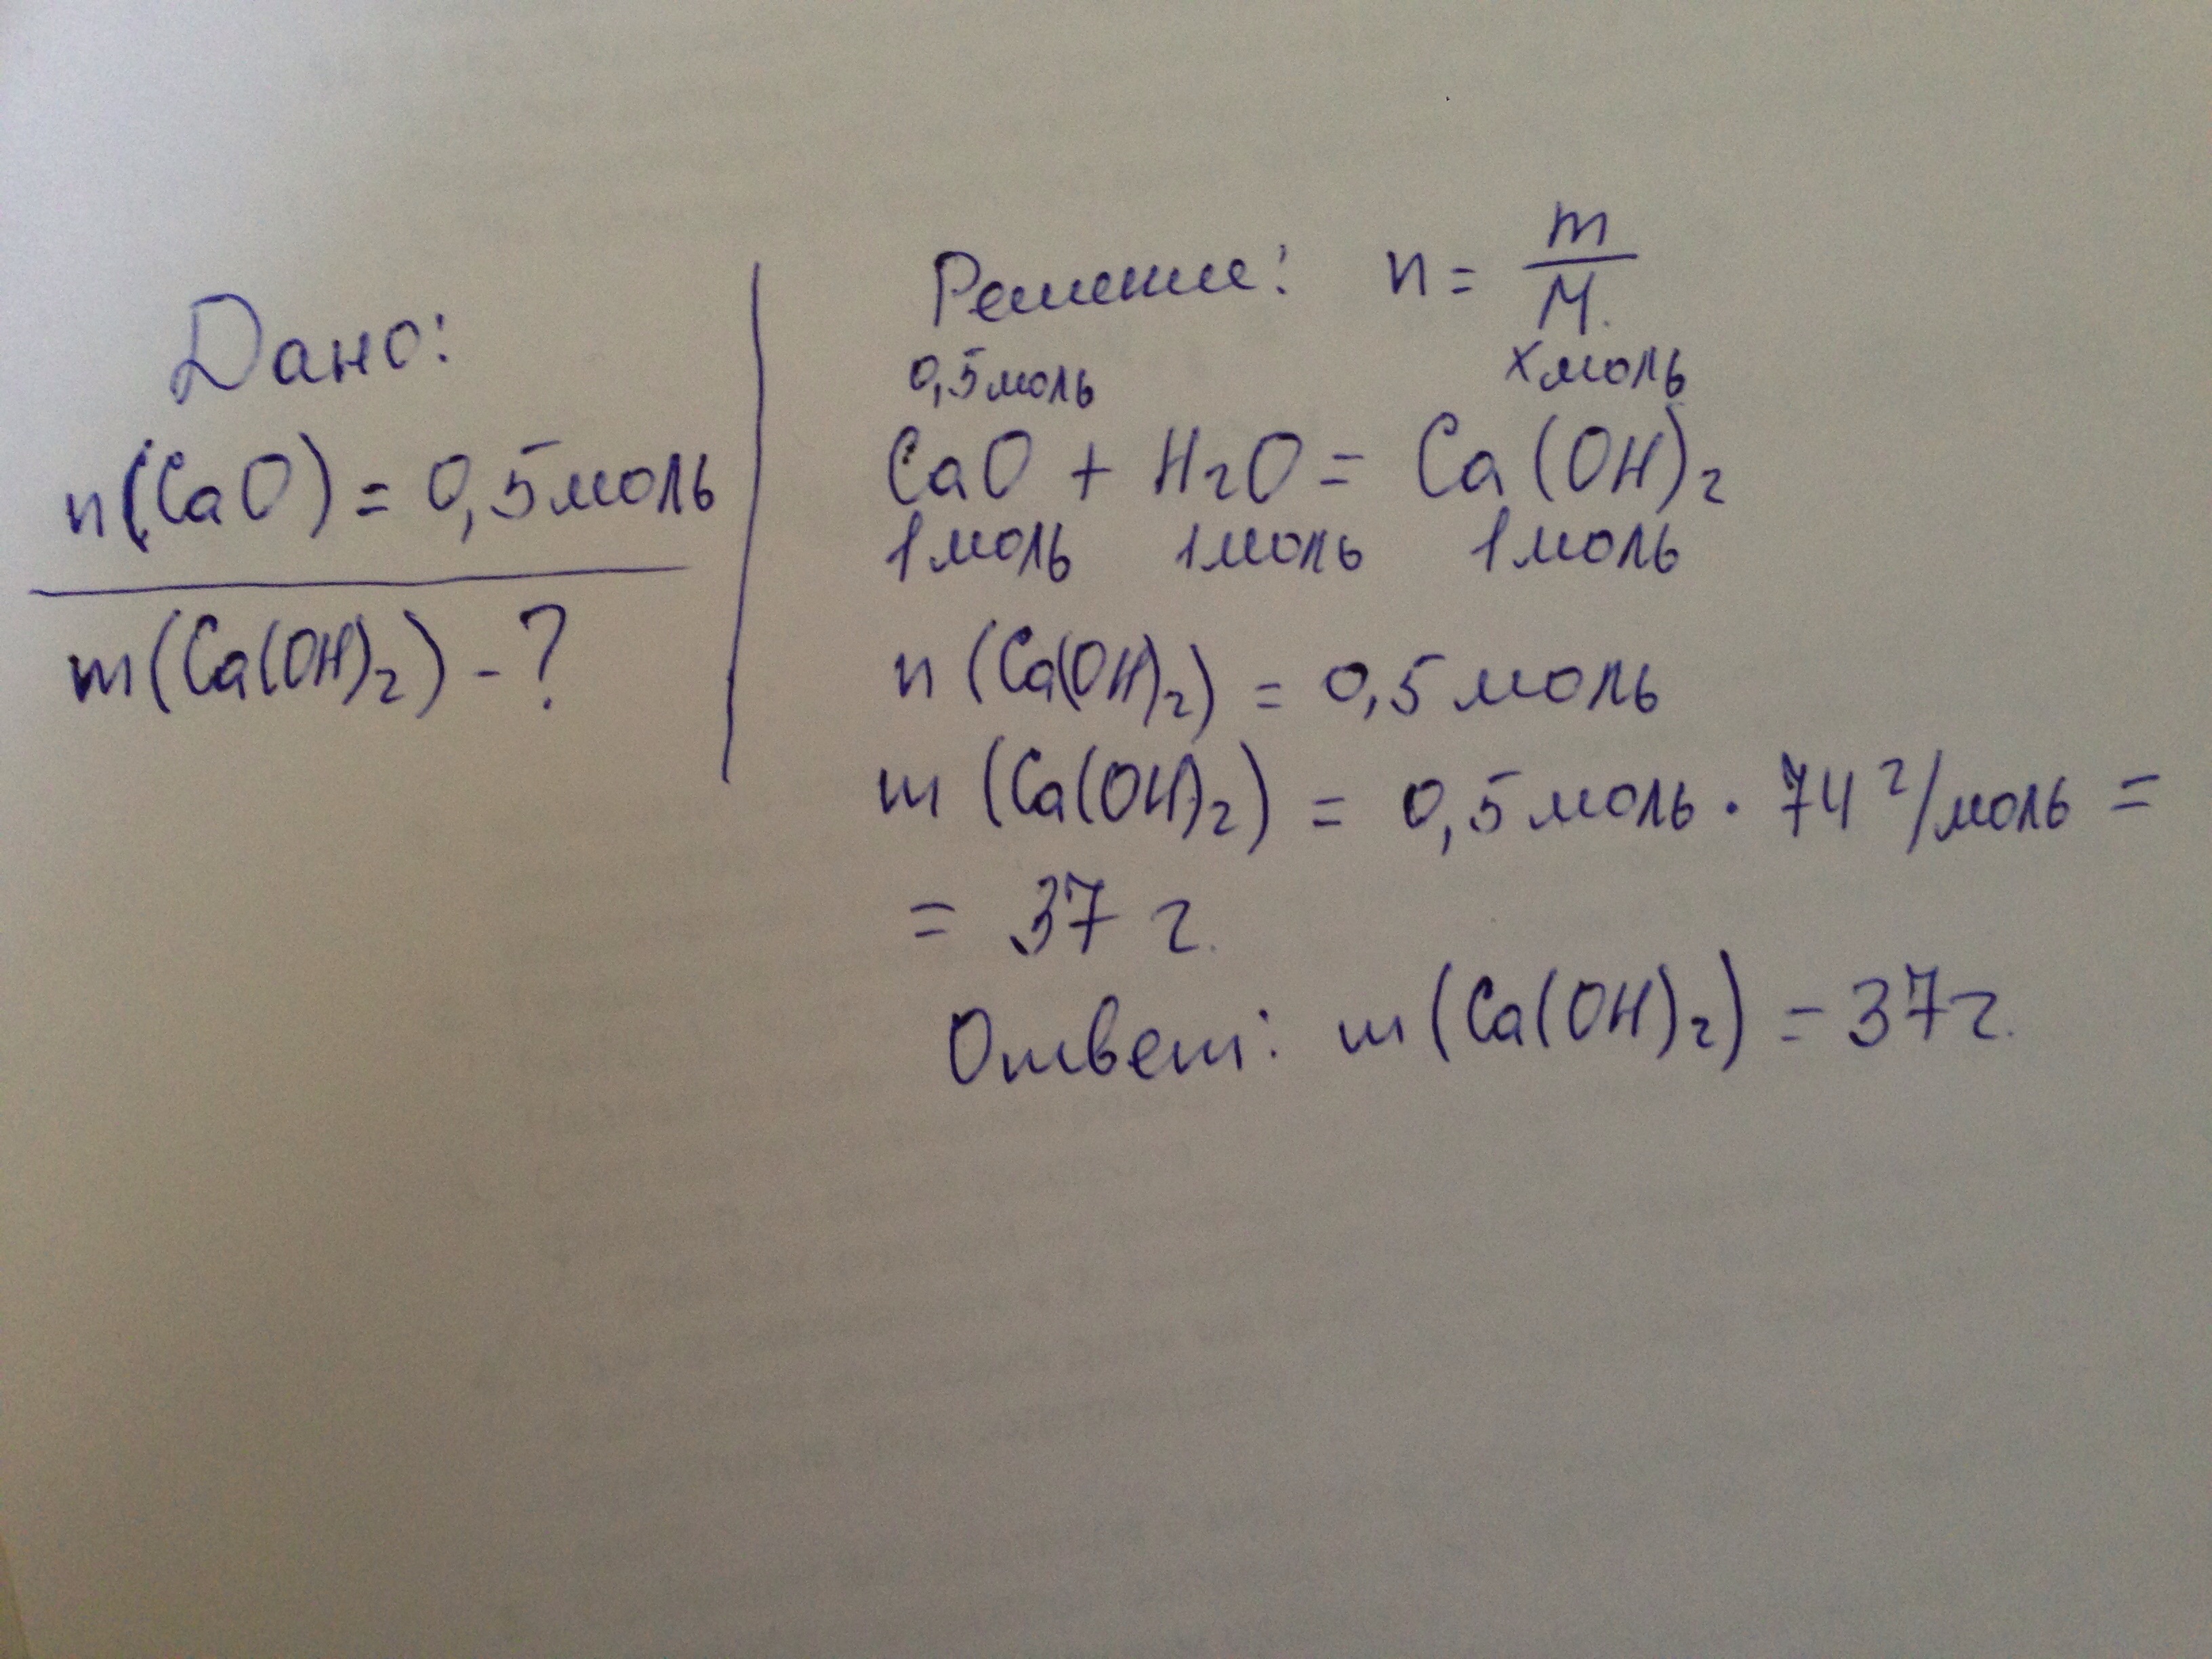 Дано:
n(CaO) = 0,5 моль
m(Ca(OH)₂) - ?
Решение: n = m/M
0,5 моль x моль
CaO + H₂O = Ca(OH)₂
1 моль 1 моль 1 моль
n (Ca(OH)₂) = 0,5 моль
m (Ca(OH)₂) = 0,5 моль · 74 г/моль =
= 37 г.
Ответ: m (Ca(OH)₂) = 37 г.